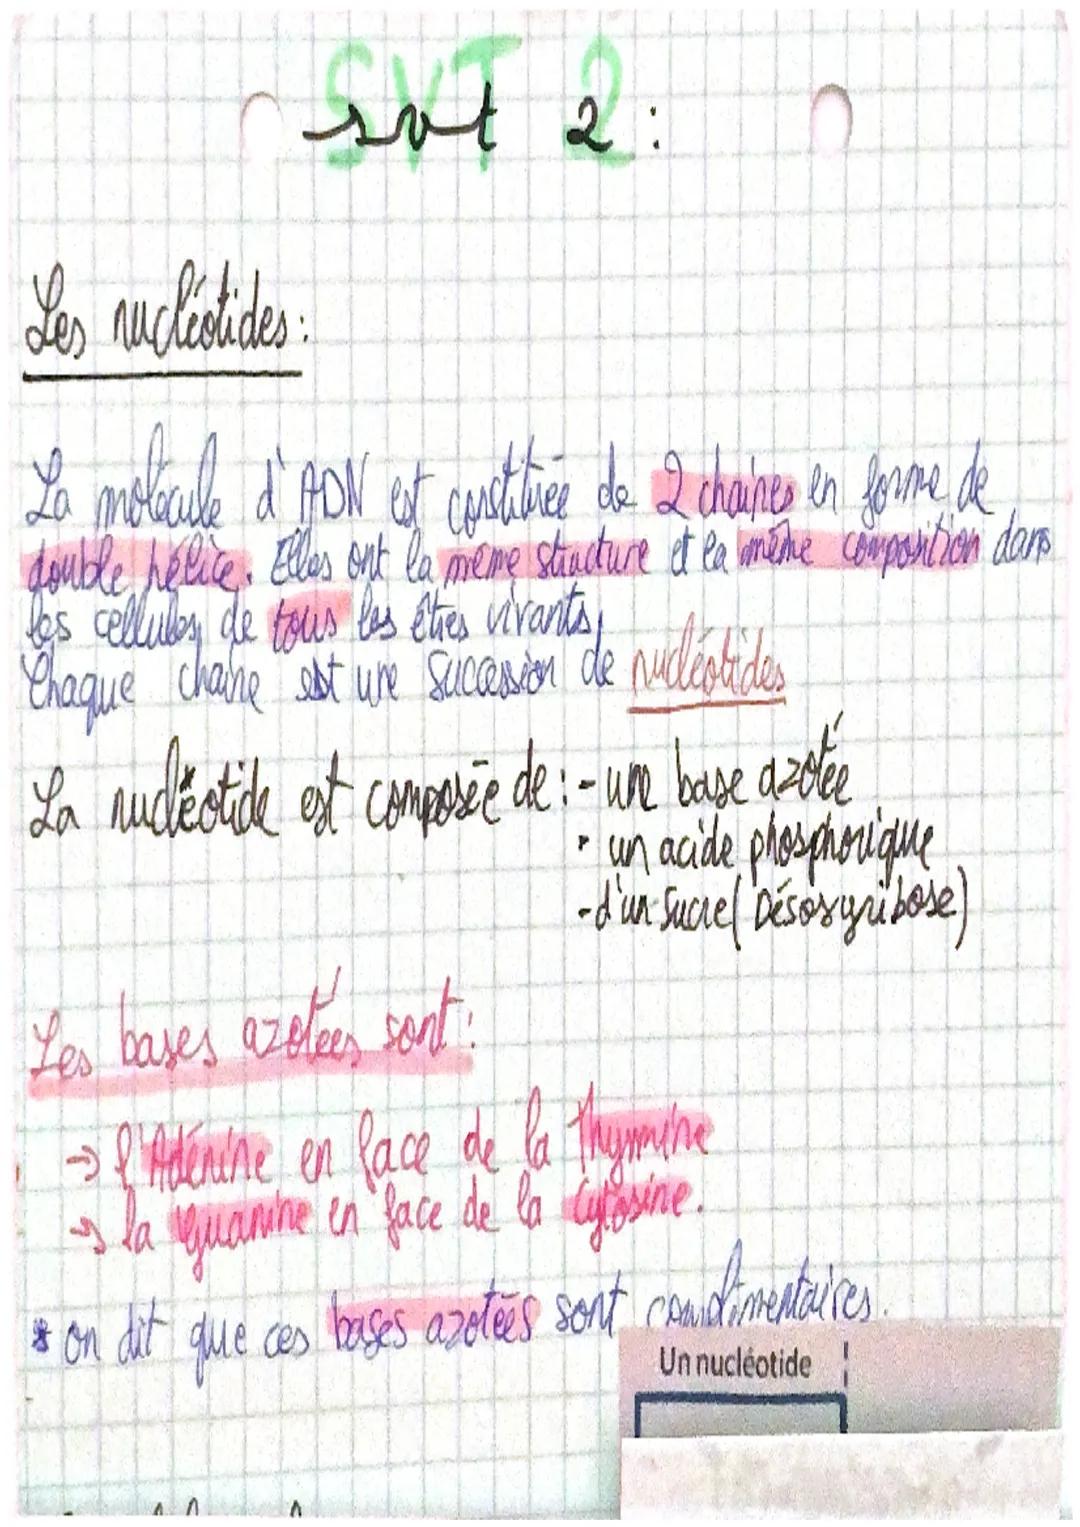 SVT 2
svt 2 :
Les nucléotides :
La molécule d'ADN est constituée de 2 chaines en forme de
double hélice. Elles ont la même structure et la même composition dans
les cellules de tous les êtres vivants,
Chaque chaine est une succession de nucléotides
La nucléotide est composée de : - une base azotée
- un acide phosphorique
- d'un sucre ( Désosyribose )
Les bases azotées sont :
→ l'Adénine en face de la Thymine
→ la Guanine en face de la Cytosine.
* on dit que ces bases azotées sont complimentaires.
Un nucléotide